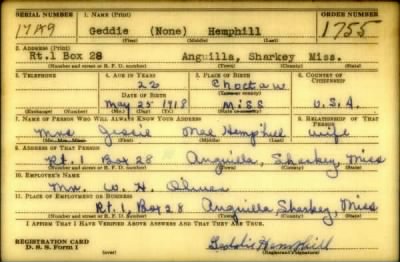 SERIAL NUMBER 1. NAME (Print) ORDER NUMBER
1749 Geddie (None) Hemphill 1755
(First) (Middle) (Last)
2. ADDRESS (Print)
Rt.1 Box 28 Anguilla, Sharkey Miss.
(Number and street or R. F. D. number) (Town) (County) (State)
3. TELEPHONE 4. AGE IN YEARS 5. PLACE OF BIRTH 6. COUNTRY OF CITIZENSHIP
22 Choctaw
DATE OF BIRTH (Town or county)
May 25 1918 Miss U.S.A.
(Exchange) (Number) (Mo.) (Day) (Yr.) (State or country)
7. NAME OF PERSON WHO WILL ALWAYS KNOW YOUR ADDRESS 8. RELATIONSHIP OF THAT PERSON
Mrs Jessie Mae Hemphill wife
(Mr., Mrs., Miss) (First) (Middle) (Last)
9. ADDRESS OF THAT PERSON
Rt. 1 Box 28 Anguilla, Sharkey, Miss
(Number and street or R. F. D. number) (Town) (County) (State)
10. EMPLOYER'S NAME
Mr. W. H.
11. PLACE OF EMPLOYMENT OR BUSINESS
Rt. 1, Box 28 Anguilla, Sharkey, Miss
(Number and street or R. F. D. number) (Town) (County) (State)
I AFFIRM THAT I HAVE VERIFIED ABOVE ANSWERS AND THAT THEY ARE TRUE.
REGISTRATION CARD
D. S. S. Form 1 Geddie Hemphill
(Registrant's signature)